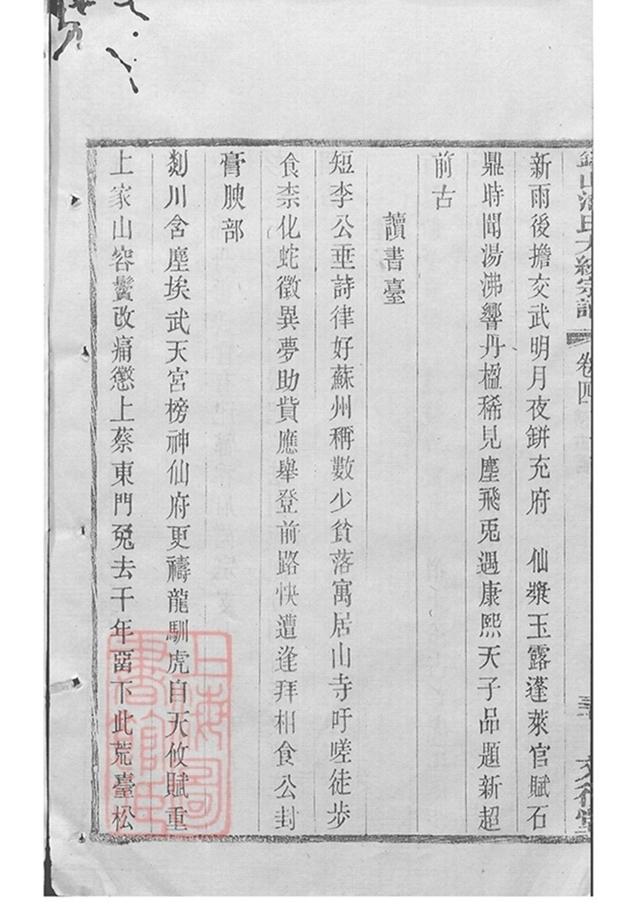 新雨後擔交武明月夜缾充府　仙漿玉露蓬萊官賦石
鼎時聞湯沸響丹楹稀見塵飛兎遇康熙天子品題新超
前古
讀書臺
短李公垂詩律好蘇州稱數少貧落寓居山寺吁嗟徒步
食柰化蛇徵異夢助貲應舉登前路快遭逢拜相食公封
膏腴部
剡川舍塵埃武天宮榜神仙府更禱龍馴虎白天攸賦重
上家山容鬢改痛懲上蔡東門兔去千年畱下此荒臺松
山
氏大統宗譜
卷四